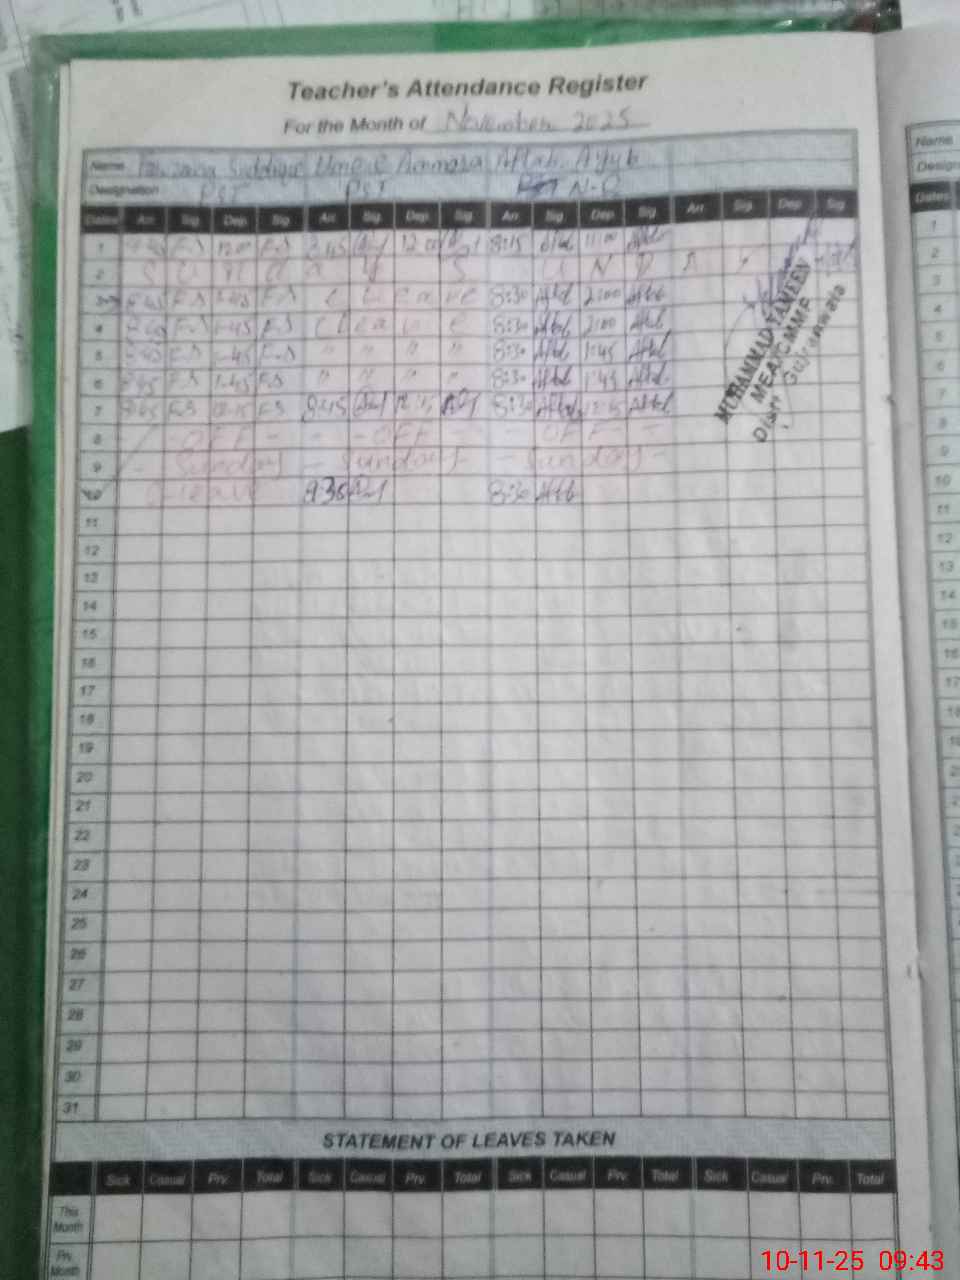 Teacher's Attendance Register
For the Month of November 2025
Name Siddique Umme Ammara Aftab Ayub
Designation PST PST N-Q
Dates Arr. Sig. Dep. Sig. Arr. Sig. Dep. Sig. Arr. Sig. Dep. Sig. Arr. Sig. Dep. Sig.
1 8:45 F.S 12:00 F.S 8:45 12:00 8:15 Aftab 11:00 Aftab
2 S u n d a y S U N D A Y
3 8:45 F.S 1:45 F.S C Leave 8:30 Aftab 2:00 Aftab
4 8:45 F.S 1:45 F.S C Leave 8:30 Aftab 2:00 Aftab
5 8:45 F.S 1:45 F.S " " " " 8:30 Aftab 1:45 Aftab
6 8:45 F.S 1:45 F.S " " " " 8:30 Aftab 1:45 Aftab
7 8:45 F.S 12:15 F.S 8:45 12:15 8:30 Aftab 12:15 Aftab
8 - OFF - - - OFF - - OFF - -
9 - Sunday - Sunday - Sunday -
10 C-leave 8:30 8:30 Aftab
11
12
13
14
15
16
17
18
19
20
21
22
23
24
25
26
27
28
29
30
31
MUHAMMAD YAMEEN
MEA/CMMF
Distt Gujranwala
STATEMENT OF LEAVES TAKEN
Sick Casual Prv. Total Sick Casual Prv. Total Sick Casual Prv. Total Sick Casual Prv. Total
This Month
Prv. Month
Name
Dates
1
2
3
4
5
6
7
8
9
10
11
12
13
14
15
16
17
18
10-11-25 09:43